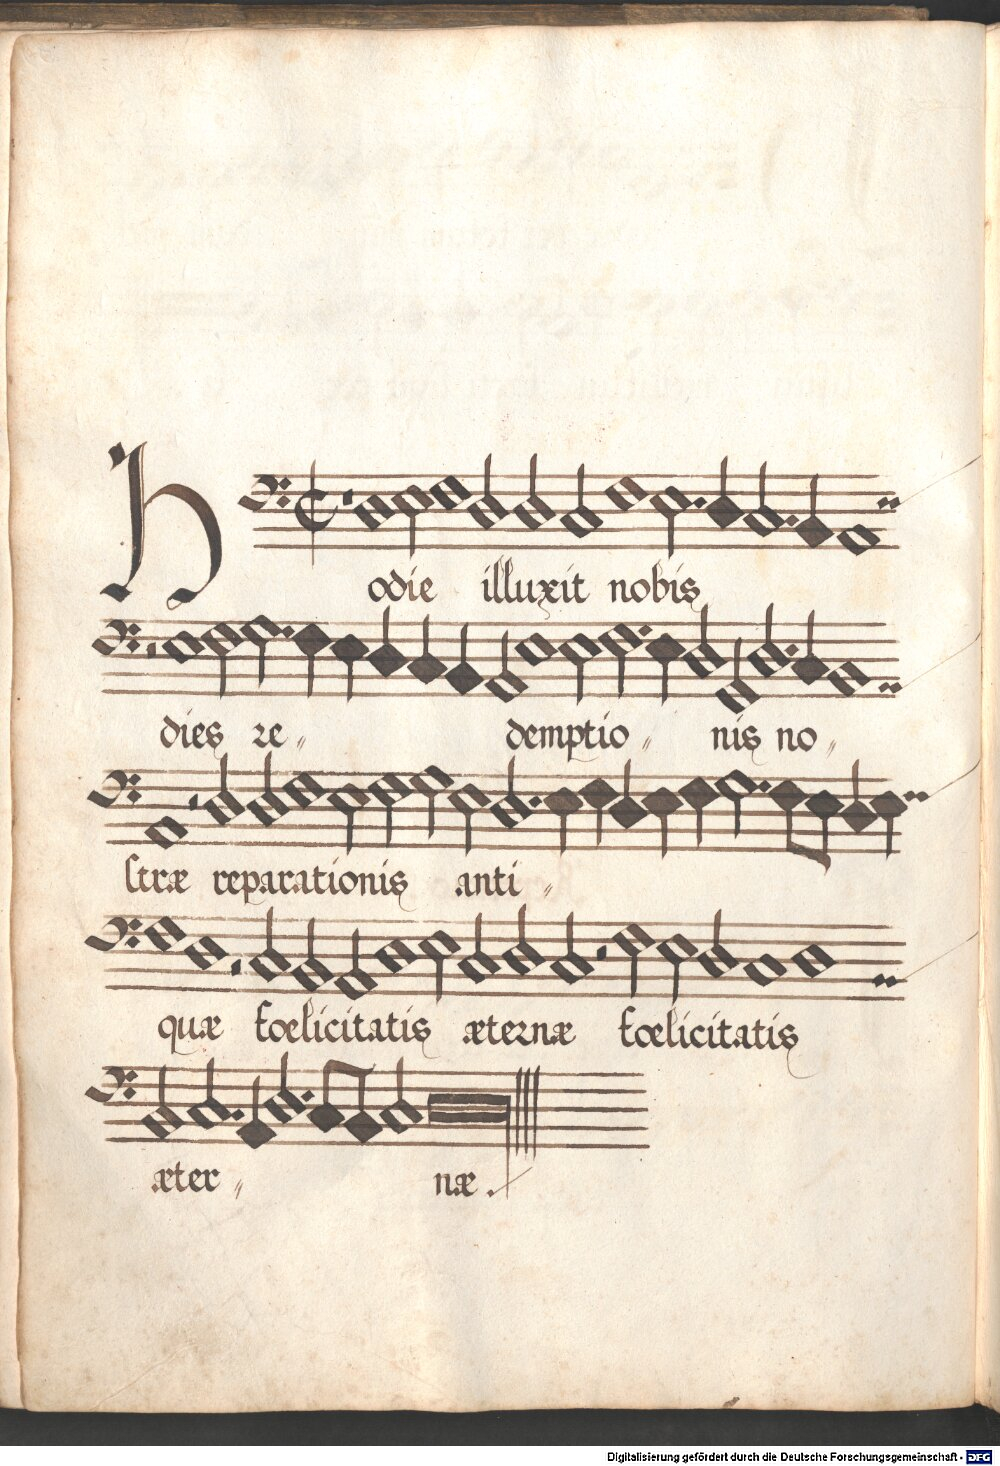 Hodie illuxit nobis
dies re〃 demptio〃 nis no〃
stræ reparationis anti〃
quæ fœlicitatis æternæ fœlicitatis
æter〃 næ.
Digitalisierung gefördert durch die Deutsche Forschungsgemeinschaft - DFG